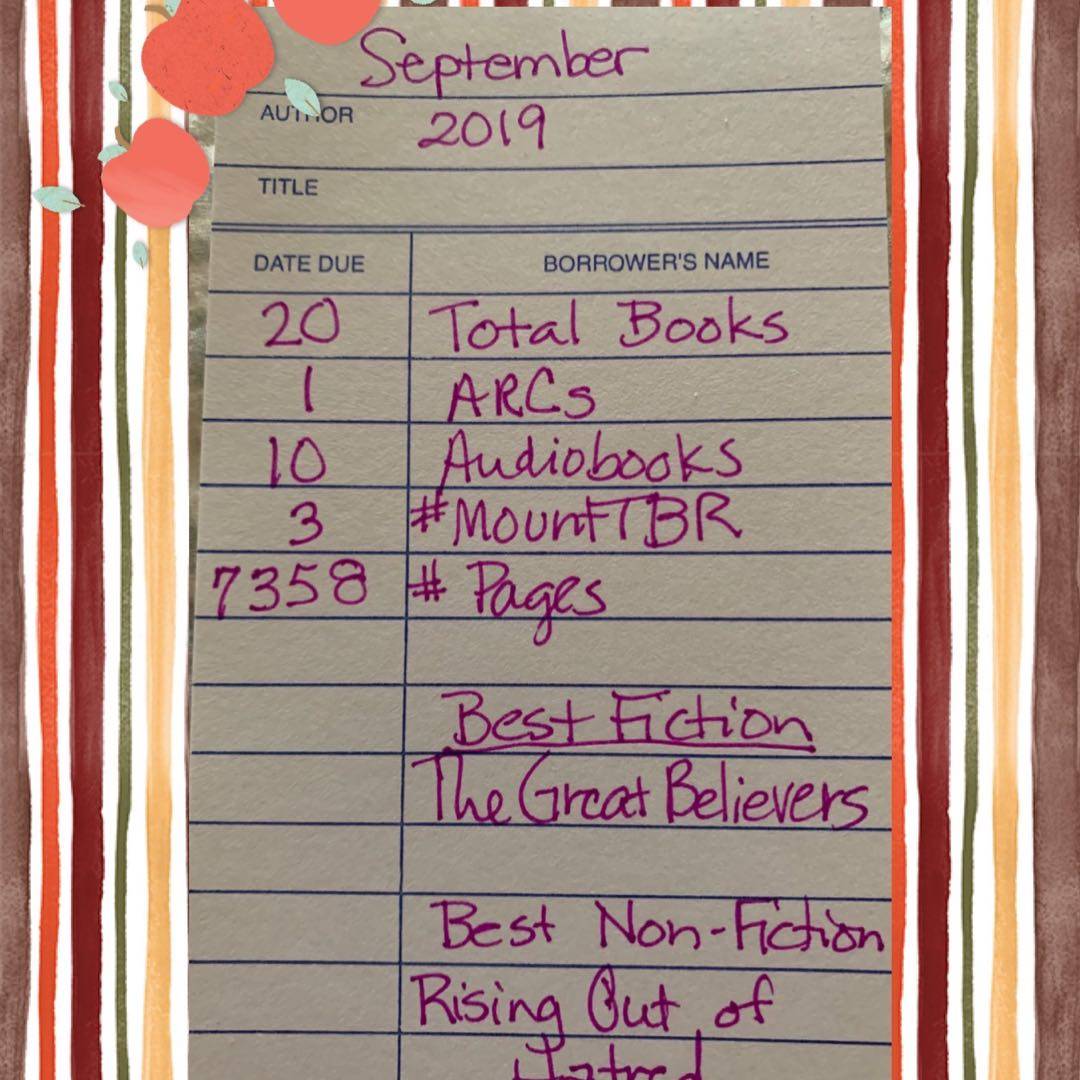 September
AUTHOR 2019
TITLE
DATE DUE BORROWER'S NAME
20 Total Books
1 ARCs
10 Audiobooks
3 #MountTBR
7358 # Pages
Best Fiction
The Great Believers
Best Non-Fiction
Rising Out of
Hatred